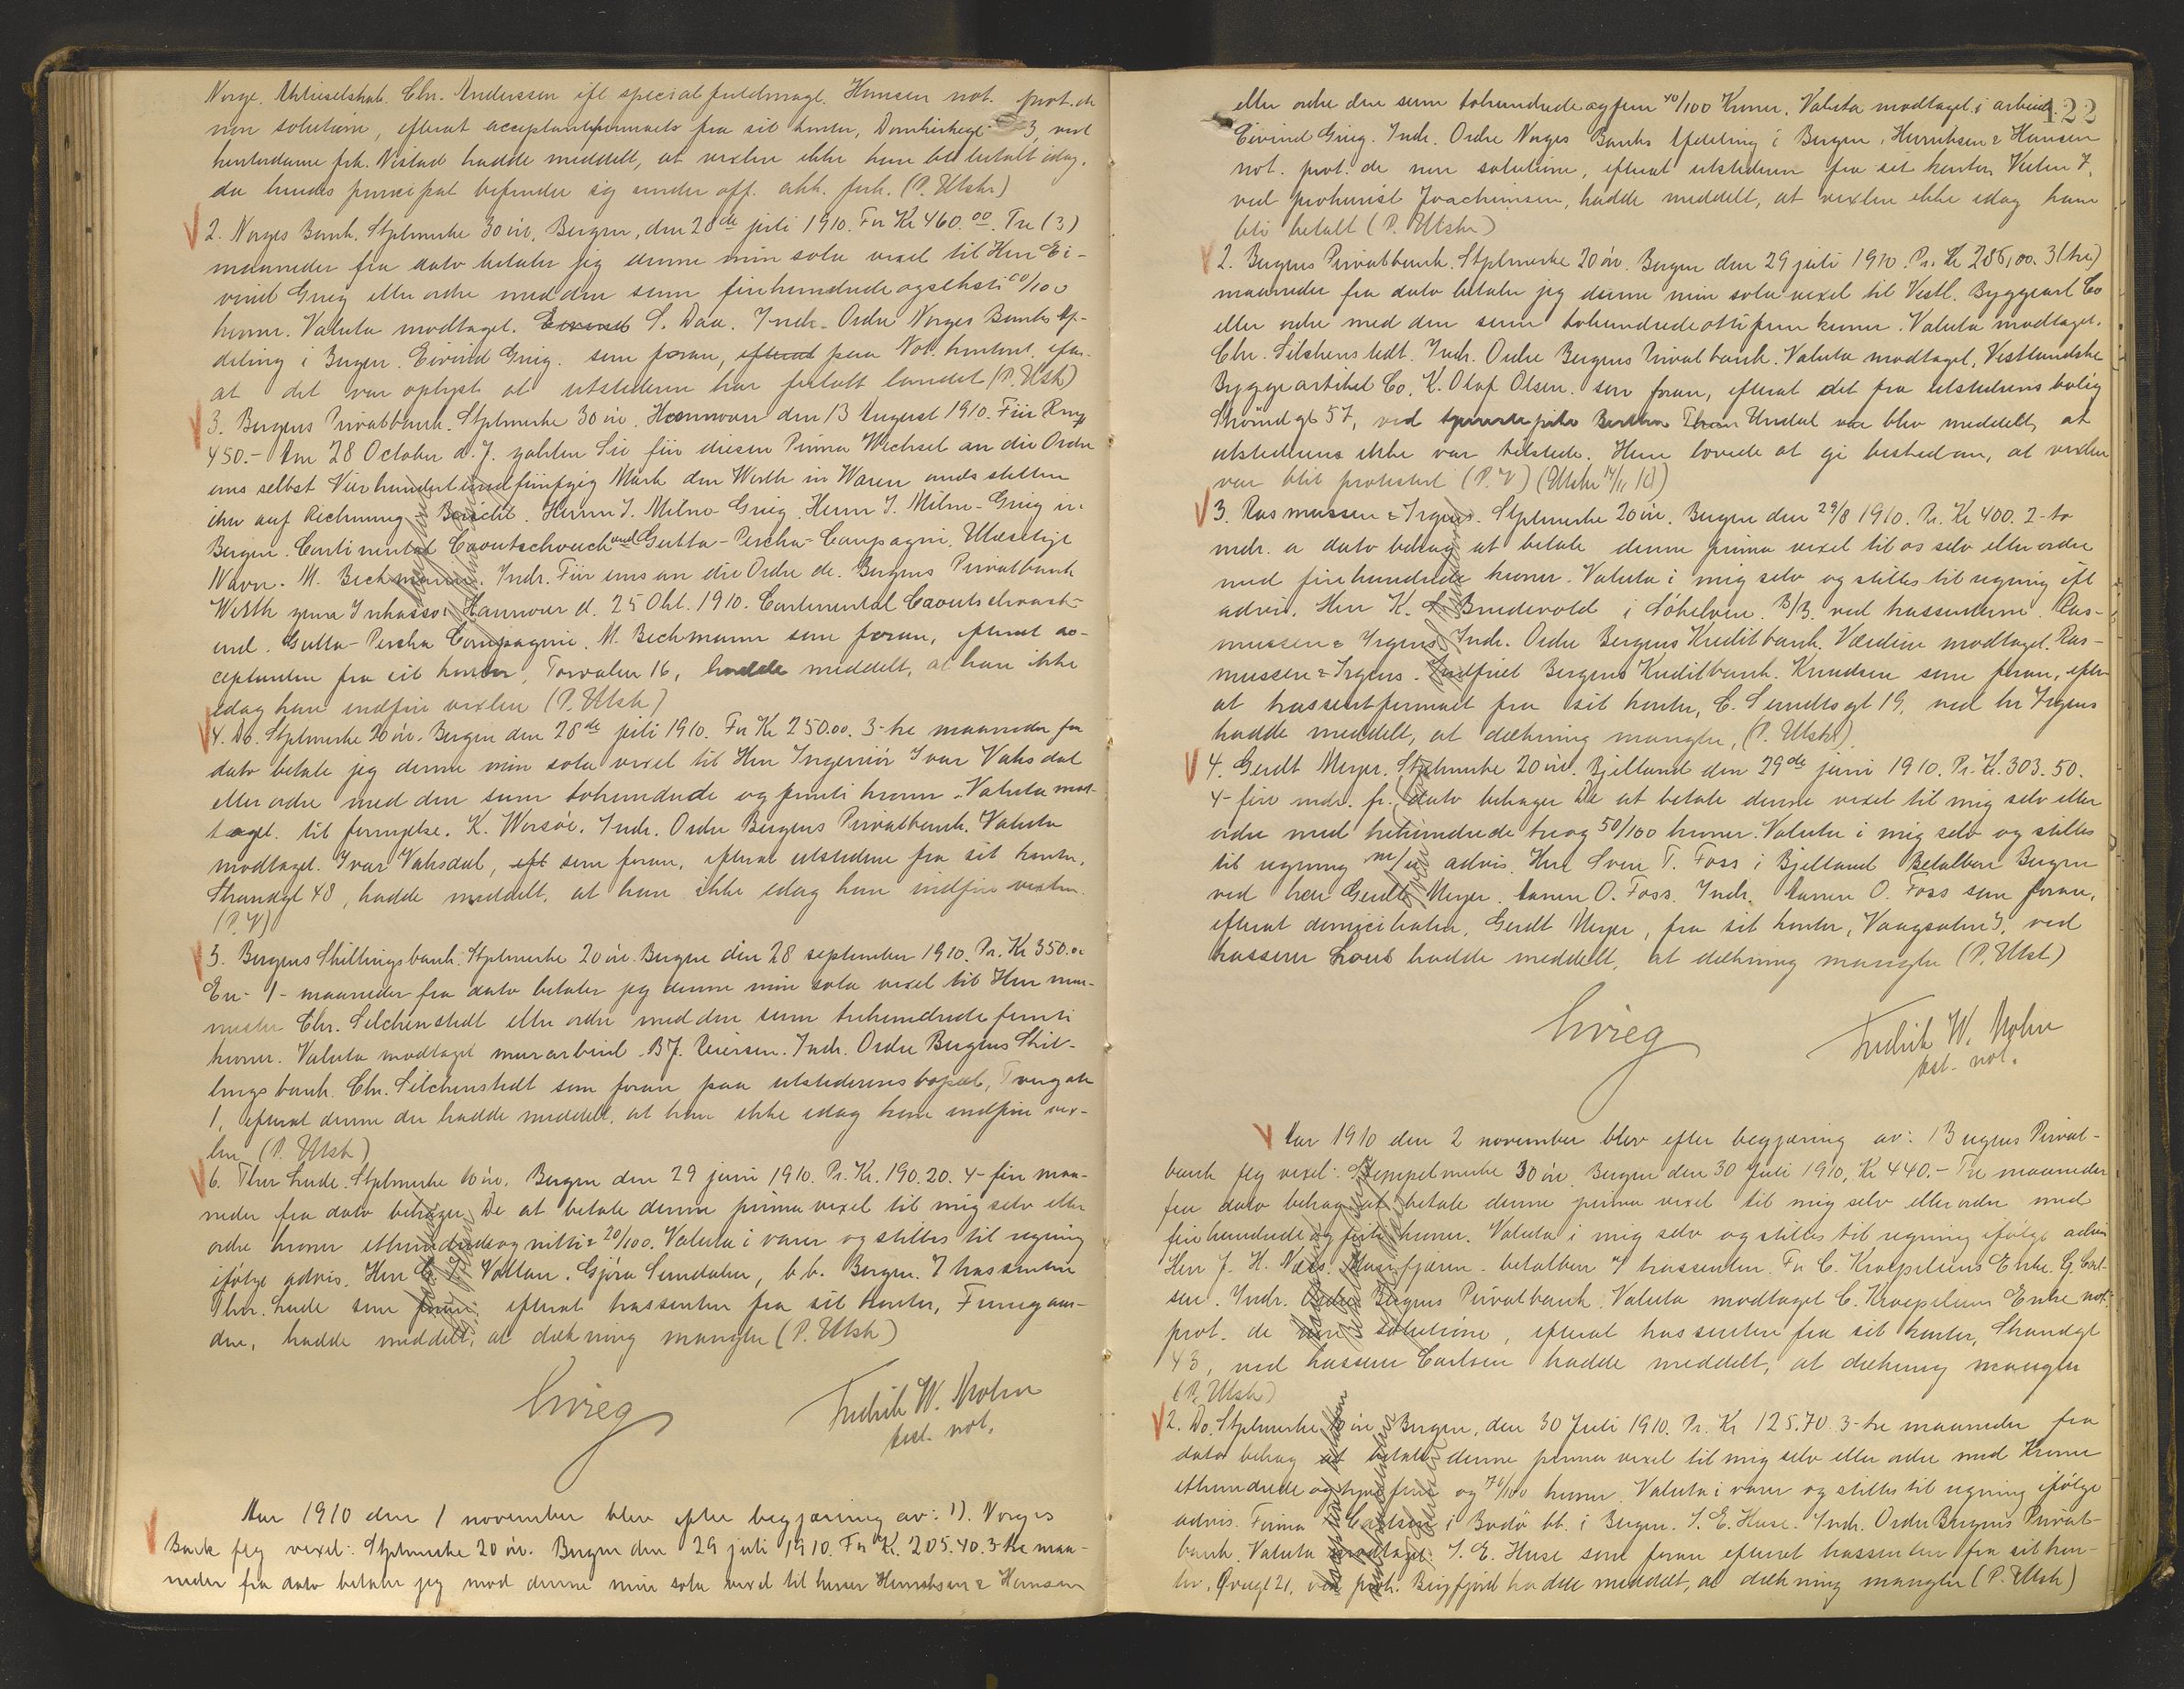 Norge. Aktieselskab. Chr. Anderssen ifl special fuldmagt. Hansen not. prot. de
non solutione, efterat acceptantfirmaets fra sit kontor, Domkirkegt 3, ved
kontordame frk. Nistad hadde meddelt, at vexlen ikke kan bli betalt idag,
da hendes principal befinder sig under off. akk. forh. (P. Utskr)
2. Norges Bank. Stplmerke 30 øre. Bergen, den 28de juli 1910. For Kr 460.00. Tre (3)
maaneder fra dato betaler jeg denne min sola vexel til Herr Ei-
vind Grieg eller ordre med den sum firehundredeogseksti 00/100
kroner. Valuta modtaget. S. Daa. Indr. Ordre Norges Banks Af-
deling i Bergen. Eivind Grieg. som foran, efterat paa Not. kontoret, efter-
at det var oplyst at utstederen har forlatt landet (P. Utsk)
3. Bergens Privatbank. Stplmerke 30 øre. Hannover den 13 August 1910. Für Rmp
450.- Am 28 October d. J. zahlen Sie für diesen Prima Wechsel an die Ordre
uns selbst Vierhundertundfünfzig Mark den Werth in Waren und stellen
ihn auf Rechnung Bericht. Herrn J. Milne-Grieg. Herrn J. Milne-Grieg in
Bergen. Continental Caoutschouck und Gutta-Percha-Compagni. Ulæselige
Navn. M. Beckmann. Indr. Für uns an die Ordre de. Bergens Privatbank
Werth zum Inkasso. Hannover d. 25 Okt. 1910. Continental Caoutschouck-
und Gutta-Percha Compagnie. M. Beckmann som foran, efterat ac-
ceptanten fra sit kontor, Torvalm 16, hadde meddelt, at han ikke
idag kan indfri vexlen (P. Utsk)
4. Do. Stplmerke 20 øre. Bergen den 28de juli 1910. For Kr 250.00. 3-tre maaneder fra
dato betale jeg denne min sola vexel til Herr Ingeniør Ivar Vaksdal
eller ordre med den sum tohundrede og femti kroner. Valuta mod-
taget til fornyelse. K. Worsøe. Indr. Ordre Bergens Privatbank. Valuta
modtaget. Ivar Vaksdal, efl som foran, efterat utstederen fra sit kontor,
Strandgt 48, hadde meddelt, at han ikke idag kan indfri vexlen.
(P. V)
5. Bergens Skillingsbank. Stplmerke 20 øre. Bergen den 28 september 1910. Pr. Kr 350.00
En- 1- maaneder fra dato betaler jeg denne min sola vexel til Herr mur-
mester Chr. Silchenstedt eller ordre med den sum trehundredefemti
kroner. Valuta modtaget murarbeid. B. J. Reiersen. Indr. Ordre Bergens Skil-
lingsbank. Chr. Silchenstedt som foran paa utstederens bopæl, Tvergate
1, efterat denne der hadde meddelt, at han ikke idag kan indfri vex-
len (P. Utsk)
6. Thor Lude. Stplmerke 10 øre. Bergen den 29 juni 1910. Pr. Kr. 190.20. 4-fire maa-
neder fra dato behager De at betale denne prima vexel til mig selv eller
ordre kroner ethundredeognitti 20/100. Valuta i varer og stilles til regning
ifølge advis. Herr Vollan. Gjøra Sundalen, b.b. Bergen. T trassenten
Thor. Lude som foran, efterat trassenten fra sit kontor, Finnegaar-
den, hadde meddelt, at dækning mangler (P. Utsk)
Grieg Fredrik W. Mohn
best. not.
Aar 1910 den 1 november blev efter begjæring av: 1). Norges
Bank flg vexel: Stplmerke 20 øre. Bergen den 29 juli 1910. For K. 205.40. 3-tre maa-
neder fra dato betaler jeg mod denne min sola vexel til herrer Henrichsen & Hansen
422
eller ordre den sum tohundredeogfem 40/100 Kroner. Valuta modtaget i arbeide
Eivind Grieg. Indr. Ordre Norges Banks Afdeling i Bergen. Henrichsen & Hansen
not. prot. de non solutione, efterat utstederen fra sit kontor Vesten 7,
ved prokurist Joachimsen, hadde meddelt, at vexlen ikke idag kan
bli betalt (P. Utskr)
2. Bergens Privatbank. Stplmerke 20 øre. Bergen den 29 juli 1910. Pr. Kr 285,00. 3 (tre)
maaneder fra dato betaler jeg denne min sola vexel til Vestl. Byggeart Co
eller ordre med den sum tohundredeottifem kroner. Valuta modtaget.
Chr. Silchenstedt. Indr. Ordre Bergens Privatbank. Valuta modtaget. Vestlandske
Byggeartikel Co. K. Olaf Olsen. som foran, efterat det fra utstederens bolig
57, ved Undal blev meddelt, at
utstederens ikke var tilstede. Hun lovede at gi besked om, at vexlen
var blit protestert (P. V) (Utskr 14/11 10)
3. Rasmussen & Irgens. Stplmerke 20 øre. Bergen den 29/8 1910. Pr. Kr 400. 2-to
mdr. a dato behag at betale denne prima vexel til os selv eller ordre
med firehundrede kroner. Valuta i mig selv og stilles til regning ifl
advis. Herr K. Bredevold i Söhelven. B/B. ved trassenterne. Ras-
mussen & Irgens. Indr. Ordre Bergens Kreditbank. Værdien modtaget. Ras-
mussen & Irgens. Indfriet Bergens Kreditbank. Knudsen som foran, efter-
at trassentfirmaet fra sit kontor, C. Sundtsgt 19, ved hr Irgens
hadde meddelt, at dækning mangler, (P. Utskr).
4. Gerdt Meyer. Stplmerke 20 øre. Bjelland den 29de juni 1910. Pr. Kr. 303.50.
4-fire mdr. fr. dato behager De at betale denne vexel til mig selv eller
ordre med trehundrede treog 50/100 kroner. Valuta i mig selv og stilles
til regning m/u advis. Herr Sven T. Foss i Bjelland Betalbar Bergen
ved herr Gerdt Meyer. Aanen O. Foss. Indr. Aanen O. Foss som foran,
efterat domiciliaten, Gerdt Meyer, fra sit kontor, Vaagsalm 3, ved
kasserer hadde meddelt, at dækning mangler (P. Utsk)
Grieg Fredrik W. Mohn
best. not.
Aar 1910 den 2 november blev efter begjæring av: Bergens Privat-
bank flg vexel: Stempelmerke 30 øre. Bergen den 30 Juli 1910. Kr 440.- Tre maaneder
fra dato behag at betale denne prima vexel til mig selv eller ordre med
firehundrede og firti kroner. Valuta i mig selv og stilles til regning ifølge advis
Herr J. H. Næss. betalbar T trassenten. For C. Kroepeliens Enke. G. Carl-
sen. Indr. Ordre Bergens Privatbank. Valuta modtaget C. Kroepelien Enke not.
prot. de non solutione, efterat trassenten fra sit kontor, Strandgt
43, ved kasserer Carlsen hadde meddelt, at dækning mangler
(P. Utsk)
2. Do. Stplmerke 10 øre Bergen, den 30 Juli 1910. Pr. Kr 125.70 3-tre maaneder fra
dato behag at betale denne prima vexel til mig selv eller ordre med Kroner
ethundrede og tyvefem og 70/100 kroner. Valuta i varer og stilles til regning ifølge
advis. Firma Carlsen i Bodø bb. i Bergen. S. E. Huse. Indr. Ordre Bergens Privat-
bank. Valuta modtaget. S. E. Huse som foran efterat trassenten fra sit kon-
tor, Øvregt 21, ved prok. Bergfjord hadde meddelt, at dækning mangler (P. Utsk)